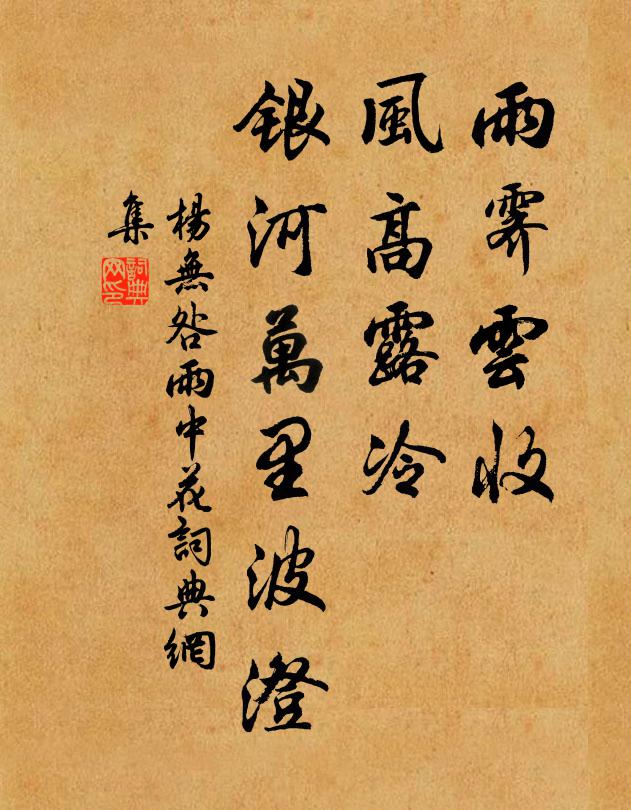 雨霽雲收
風高露冷
銀河萬里波澄
楊無咎雨中花詞典網
集
詞典
网印